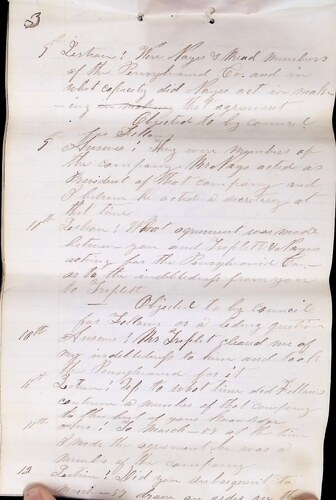 3
9th Question! Were Nays & Mead members
of the Pennsylvania Co. and in
what capacity did Nays act in mak-
ing the agreement
Objected to by counsel
for Fellows
9 Answer! They were members of
the company Mr Nays acted as
President of that company and
I believe he acted a secretary at
that time
10th Question! What agreement was made
between you and Triplett & Nays
acting for the Pennsylvania Co.
as to the indebtedness from you
to Triplett
Objected to by council
for Fellows as a leading question
10th Answer! Mr Triplet cleared me of
my indebtedness to him and took
the Pennsylvania for it
11th Question! Up to what time did Fellows
continue a member of that company
to the best of your knowledge
11th Answer! To March at the time
I made the agreement he was a
member of the company
12 Question! Did you subsequent to
draw an order